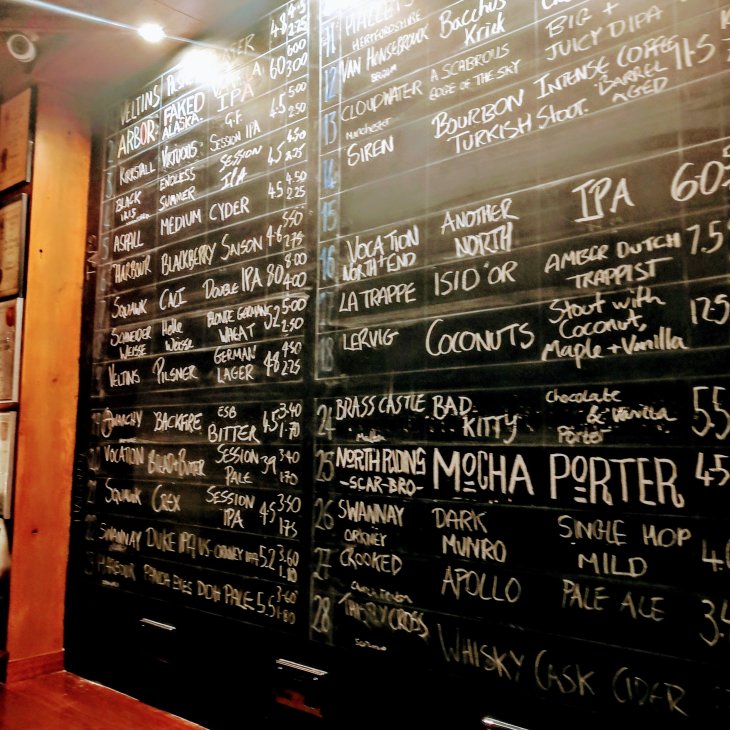 VELTINS
ARBOR FAKED ALASKA IPA G.F. 60 6.00 3.00
KIRKSTALL VIRTUOUS SESSION IPA 4.5 5.00 2.50
BLACK ENDLESS SUMMER SESSION IPA 4.5 4.50 2.25
ASPALL MEDIUM CYDER 4.5 4.50 2.25
HARBOUR BLACKBERRY SAISON 4.6 5.50 2.75
SQUAWK CACI DOUBLE IPA 80 8.00 4.00
SCHNEIDER WEISSE Helle Weisse BLONDE GERMAN WHEAT 52 5.00 2.50
VELTINS PILSNER GERMAN LAGER 48 4.50 2.25
ANARCHY BACKFIRE ESB BITTER 4.5 3.40 1.70
20 VOCATION BREAD+BUTTER SESSION PALE 39 3.40 1.70
21 SQUAWK CREX SESSION IPA 4.5 3.50 1.75
22 SWANNAY DUKE IPA VS ORKNEY IPA 5.2 3.60 1.80
HARBOUR PANDA EYES DDH PALE 5.5 3.60 1.80
11 HERTFORDSHIRE
12 VAN HONSEBROUCK BELGIUM Bacchus Kriek
13 CLOUDWATER Manchester A SCABROUS EDGE OF THE SKY BIG + JUICY DIPA
14 SIREN BOURBON TURKISH Stout. INTENSE COFFEE BARREL AGED 11.5
15
16 VOCATION NORTH+END ANOTHER NORTH IPA 60
17 LA TRAPPE ISID'OR AMBER DUTCH TRAPPIST 7.5
18 LERVIG COCONUTS Stout with Coconut, Maple + Vanilla 12.5
24 BRASS CASTLE Malton BAD KITTY chocolate & Vanilla Porter 5.5
25 NORTH RIDING -SCAR-BRO- MOCHA PORTER 4.5
26 SWANNAY ORKNEY DARK MUNRO SINGLE HOP MILD 4.
27 CROOKED APOLLO PALE ALE 3.
28 THISTLY CROSS WHISKY CASK CIDER